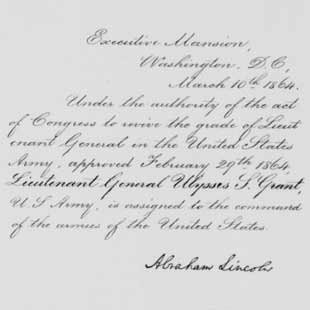 Executive Mansion,
Washington, D.C,
March 10th 1864.
Under the authority of the act
of Congress to revive the grade of Lieut
enant General in the United States
Army, approved February 29th 1864,
Lieutenant General Ulysses S. Grant,
U S Army, is assigned to the command
of the armies of the United States.
Abraham Lincoln